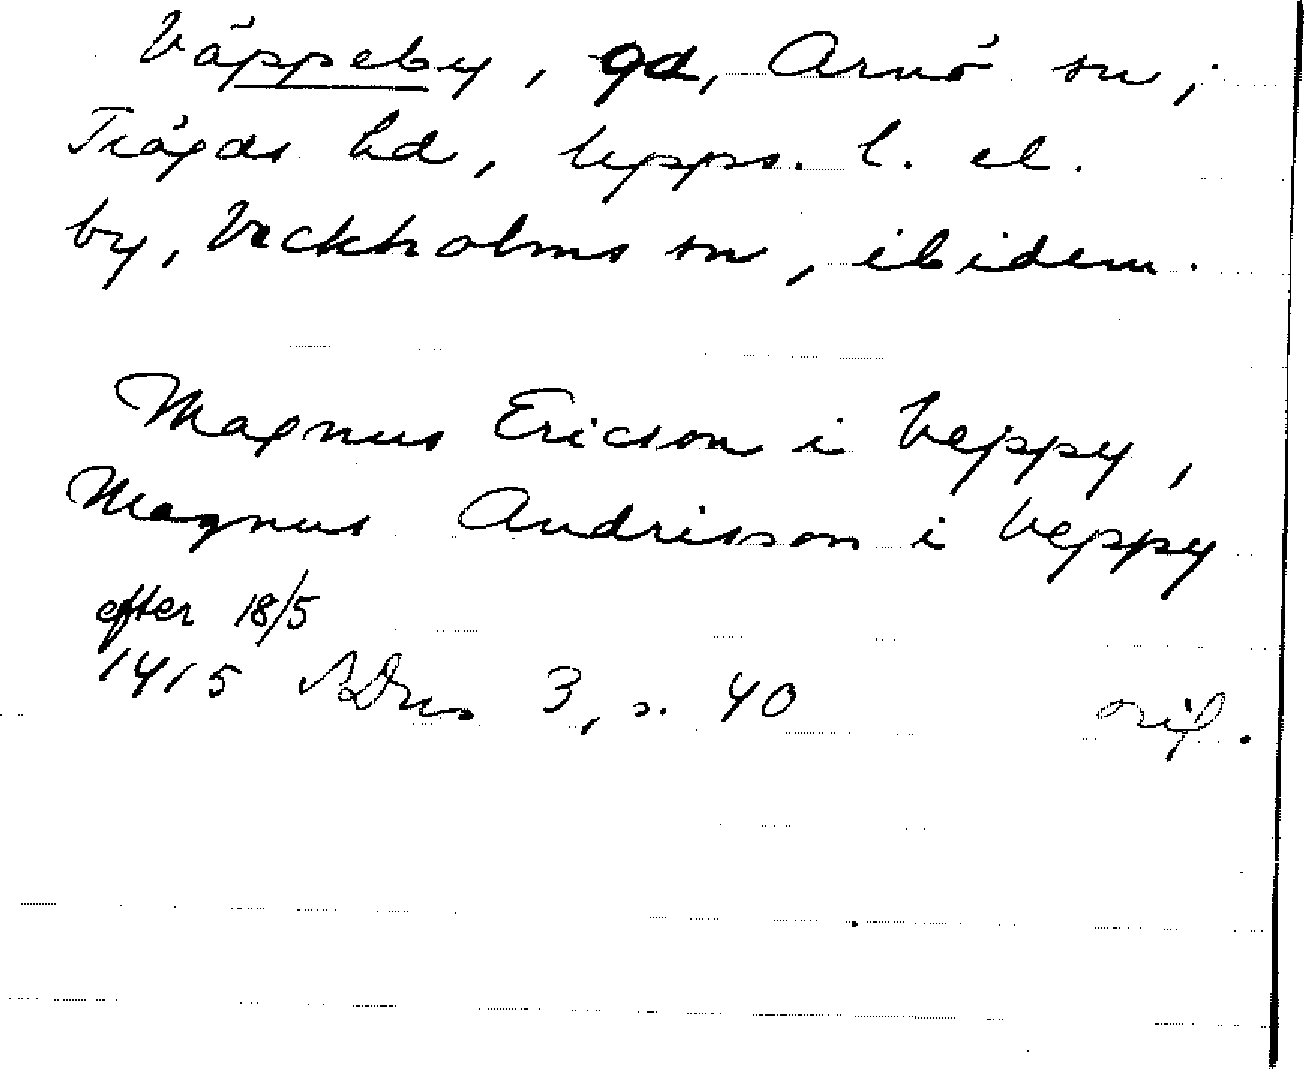 Väppeby, gd, Arnö sn;
Trögds hd, Upps. l. el.
by, Veckholms sn, ibidem.
Magnus Ericson i Veppy,
Magnus Andrisson i Veppy
efter 18/5
1415 SDns 3, s. 40 orig.